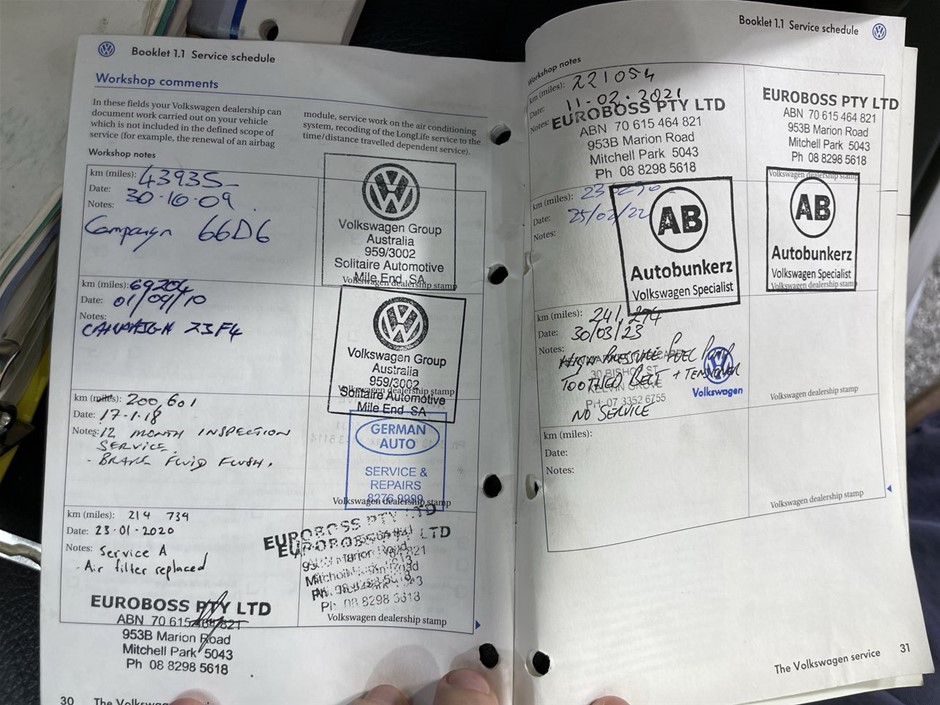 Booklet 1.1 Service schedule
Workshop comments
In these fields your Volkswagen dealership can
document work carried out on your vehicle
which is not included in the defined scope of
service (for example, the renewal of an airbag
module, service work on the air conditioning
system, recoding of the LongLife service to the
time/distance travelled dependent service).
Workshop notes
km (miles): 43935
Date: 30-10-09
Notes:
Campaign 66D6
Volkswagen Group
Australia
959/3002
Solitaire Automotive
Mile End SA
Volkswagen dealership stamp
km (miles): 69204
Date: 01/09/10
Notes:
CAMPAIGN 23F4
Volkswagen Group
Australia
959/3002
Volkswagen dealership stamp
Solitaire Automotive
Mile End SA
km (miles): 200,601
Date: 17-1-18
Notes: 12 MONTH INSPECTION
SERVICE.
- BRAKE FLUID FLUSH.
GERMAN
AUTO
SERVICE &
REPAIRS
8276 9999
Volkswagen dealership stamp
km (miles): 214 734
Date: 23-01-2020
Notes: Service A
- Air filter replaced
EUROBOSS PTY LTD
EUROBOSS PTY LTD
Marion Road
Ph 08 8298 5618
Volkswagen dealership stamp
EUROBOSS PTY LTD
ABN 70 615 464 821
953B Marion Road
Mitchell Park 5043
Ph 08 8298 5618
30 The Volkswagen
Booklet 1.1 Service schedule
Workshop notes
km (miles): 221054
Date: 11-02-2021
Notes:
EUROBOSS PTY LTD
ABN 70 615 464 821
953B Marion Road
Mitchell Park 5043
Ph 08 8298 5618
EUROBOSS PTY LTD
ABN 70 615 464 821
953B Marion Road
Mitchell Park 5043
Ph 08 8298 5618
Volkswagen dealership stamp
km (miles):
Date: 25/02/22
Notes:
AB
Autobunkerz
Volkswagen Specialist
AB
Autobunkerz
Volkswagen Specialist
Volkswagen dealership stamp
km (miles): 241,
Date: 30/03/23
Notes:
HIGH PRESSURE FUEL PUMP
TOOTHED BELT + TENSIONER
KELVIN GROVE
PH: 07 3352 6755
NO SERVICE
Volkswagen
Volkswagen dealership stamp
km (miles):
Date:
Notes:
Volkswagen dealership stamp
The Volkswagen service 31